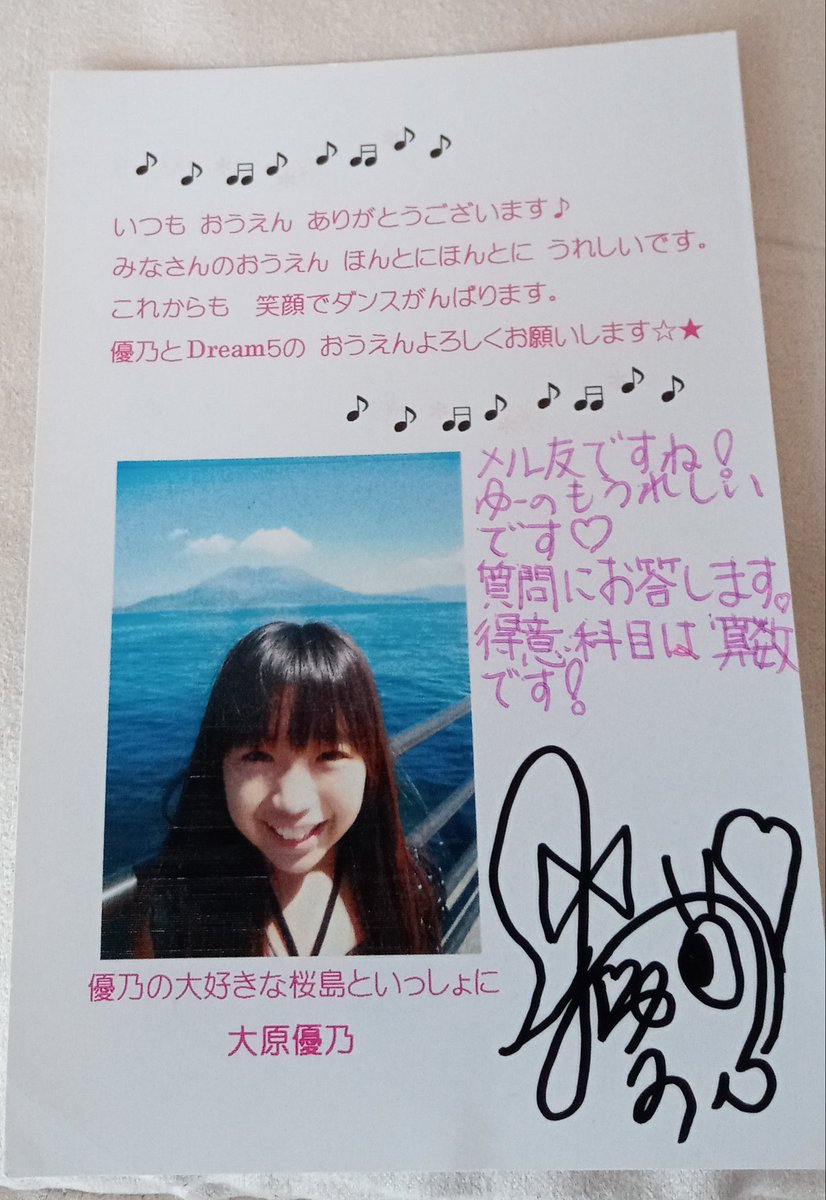 いつも おうえん ありがとうございます♪
みなさんのおうえん ほんとにほんとに うれしいです。
これからも 笑顔でダンスがんばります。
優乃とDream5の おうえんよろしくお願いします☆★
メル友ですね!
ゆーのもうれしい
です♡
質問にお答します。
得意科目は算数
です!
優乃の大好きな桜島といっしょに
大原優乃